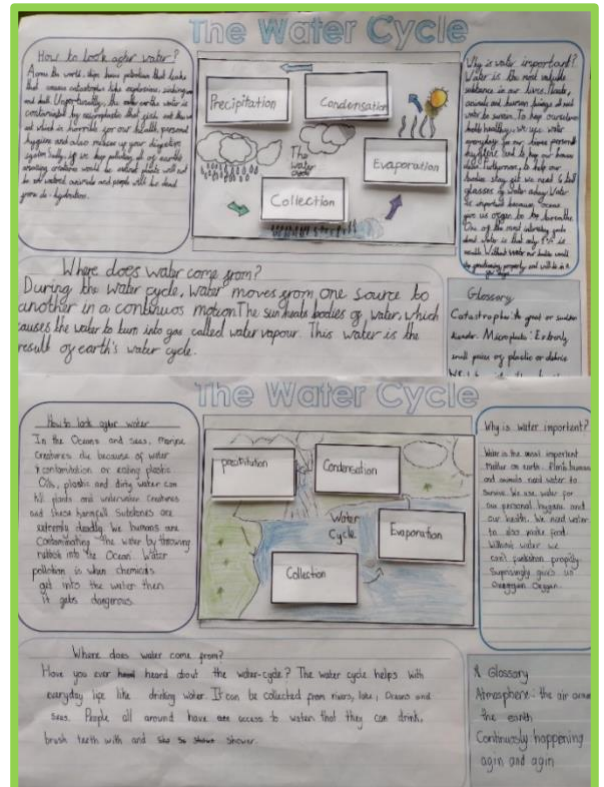 The Water Cycle
How to look after water?
Across the world, ships have petroleum that leaks
that causes catastrophes like explosions, sinking
and death. Unfortunately, the
contaminated by microplastic that
and which is horrible for our health, personal
hygiene and also makes up your digestion
system badly, if we keep polluting all of earths
amazing creations would be extinct, plants will not
be not watered, animals and people will be dead
from de-hydration.
Precipitation
Condensation
The
water
cycle
Evaporation
Collection
Why is water important?
Water is the most valuable
substance in our lives. Plants,
animals and human beings all need
water to survive. To keep ourselves
health healthy, we use water
everyday for our personal
hygiene and to keep our homes
to help our
bodies stay fit we need 6 to 8
glasses of water a day. Water
is important because oceans
give us oxygen to breathe
One of the most interesting facts
about water is that only
usable. Without water our bodies would
be functioning properly and will be in
Where does water come from?
During the water cycle, water moves from one source to
another in a continuos motion. The sun heats bodies of water, which
causes the water to turn into gas called water vapour. This water is the
result of earth's water cycle.
Glossary
Catastrophe: A great or sudden
disaster. Microplastic: Extremely
small peices of plastic or debris
The Water Cycle
How to look after water
In the Oceans and seas, Marine
creatures die because of water
contamitation or eating plastic
Oils, plastic and dirty water can
kill plants and underwater creatures
and these harmfull Substances are
extremly deadly. We humans are
Contaminating the water by throwing
rubbish into the Ocean. Water
pollution is when chemicals
get into the water then
it gets dangerous.
precipitation
Condensation
Water
Cycle
Evaporation
Collection
Why is water important?
Water is the most important
Matter on earth. Plants, humans
and animals need water to
Survive. We use water for
our personal hygiene and
our health. We need water
to also make food.
Without water we
can't function properly.
Suprisingly gives us
Oxygen.
Where does water come from?
Have you ever heard about the water-cycle? The water cycle helps with
everyday life like drinking water. It can be collected from rivers, lake, Oceans and
seas. People all around have access to water that they can drink,
brush teeth with and shower.
Glossary
Atmosphere: the air around
the earth
Continuosly happening
agin and agin